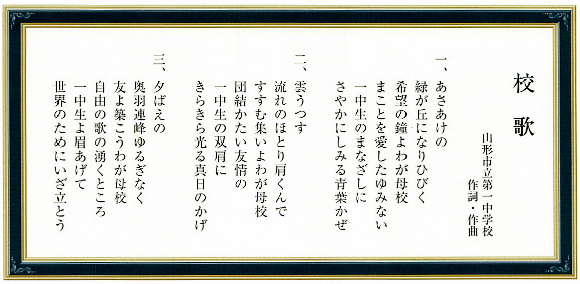 校歌
山形市立第一中学校
作詞・作曲
一、あさあけの
緑が丘になりひびく
希望の鐘よわが母校
まことを愛したゆみない
一中生のまなざしに
さやかにしみる青葉かぜ
二、雲うつす
流れのほとり肩くんで
すすむ集いよわが母校
団結かたい友情の
一中生の双肩に
きらきら光る真日のかげ
三、夕ばえの
奥羽連峰ゆるぎなく
友よ築こうわが母校
自由の歌の湧くところ
一中生よ眉あげて
世界のためにいざ立とう